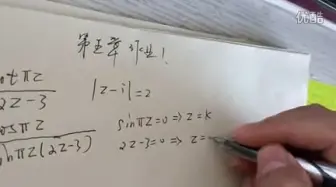 优酷
第五章 作业!
cotπz
2z-3
|z-i|=2
cosπz
sinπz(2z-3)
sinπz=0 => z=k
2z-3=0 => z=